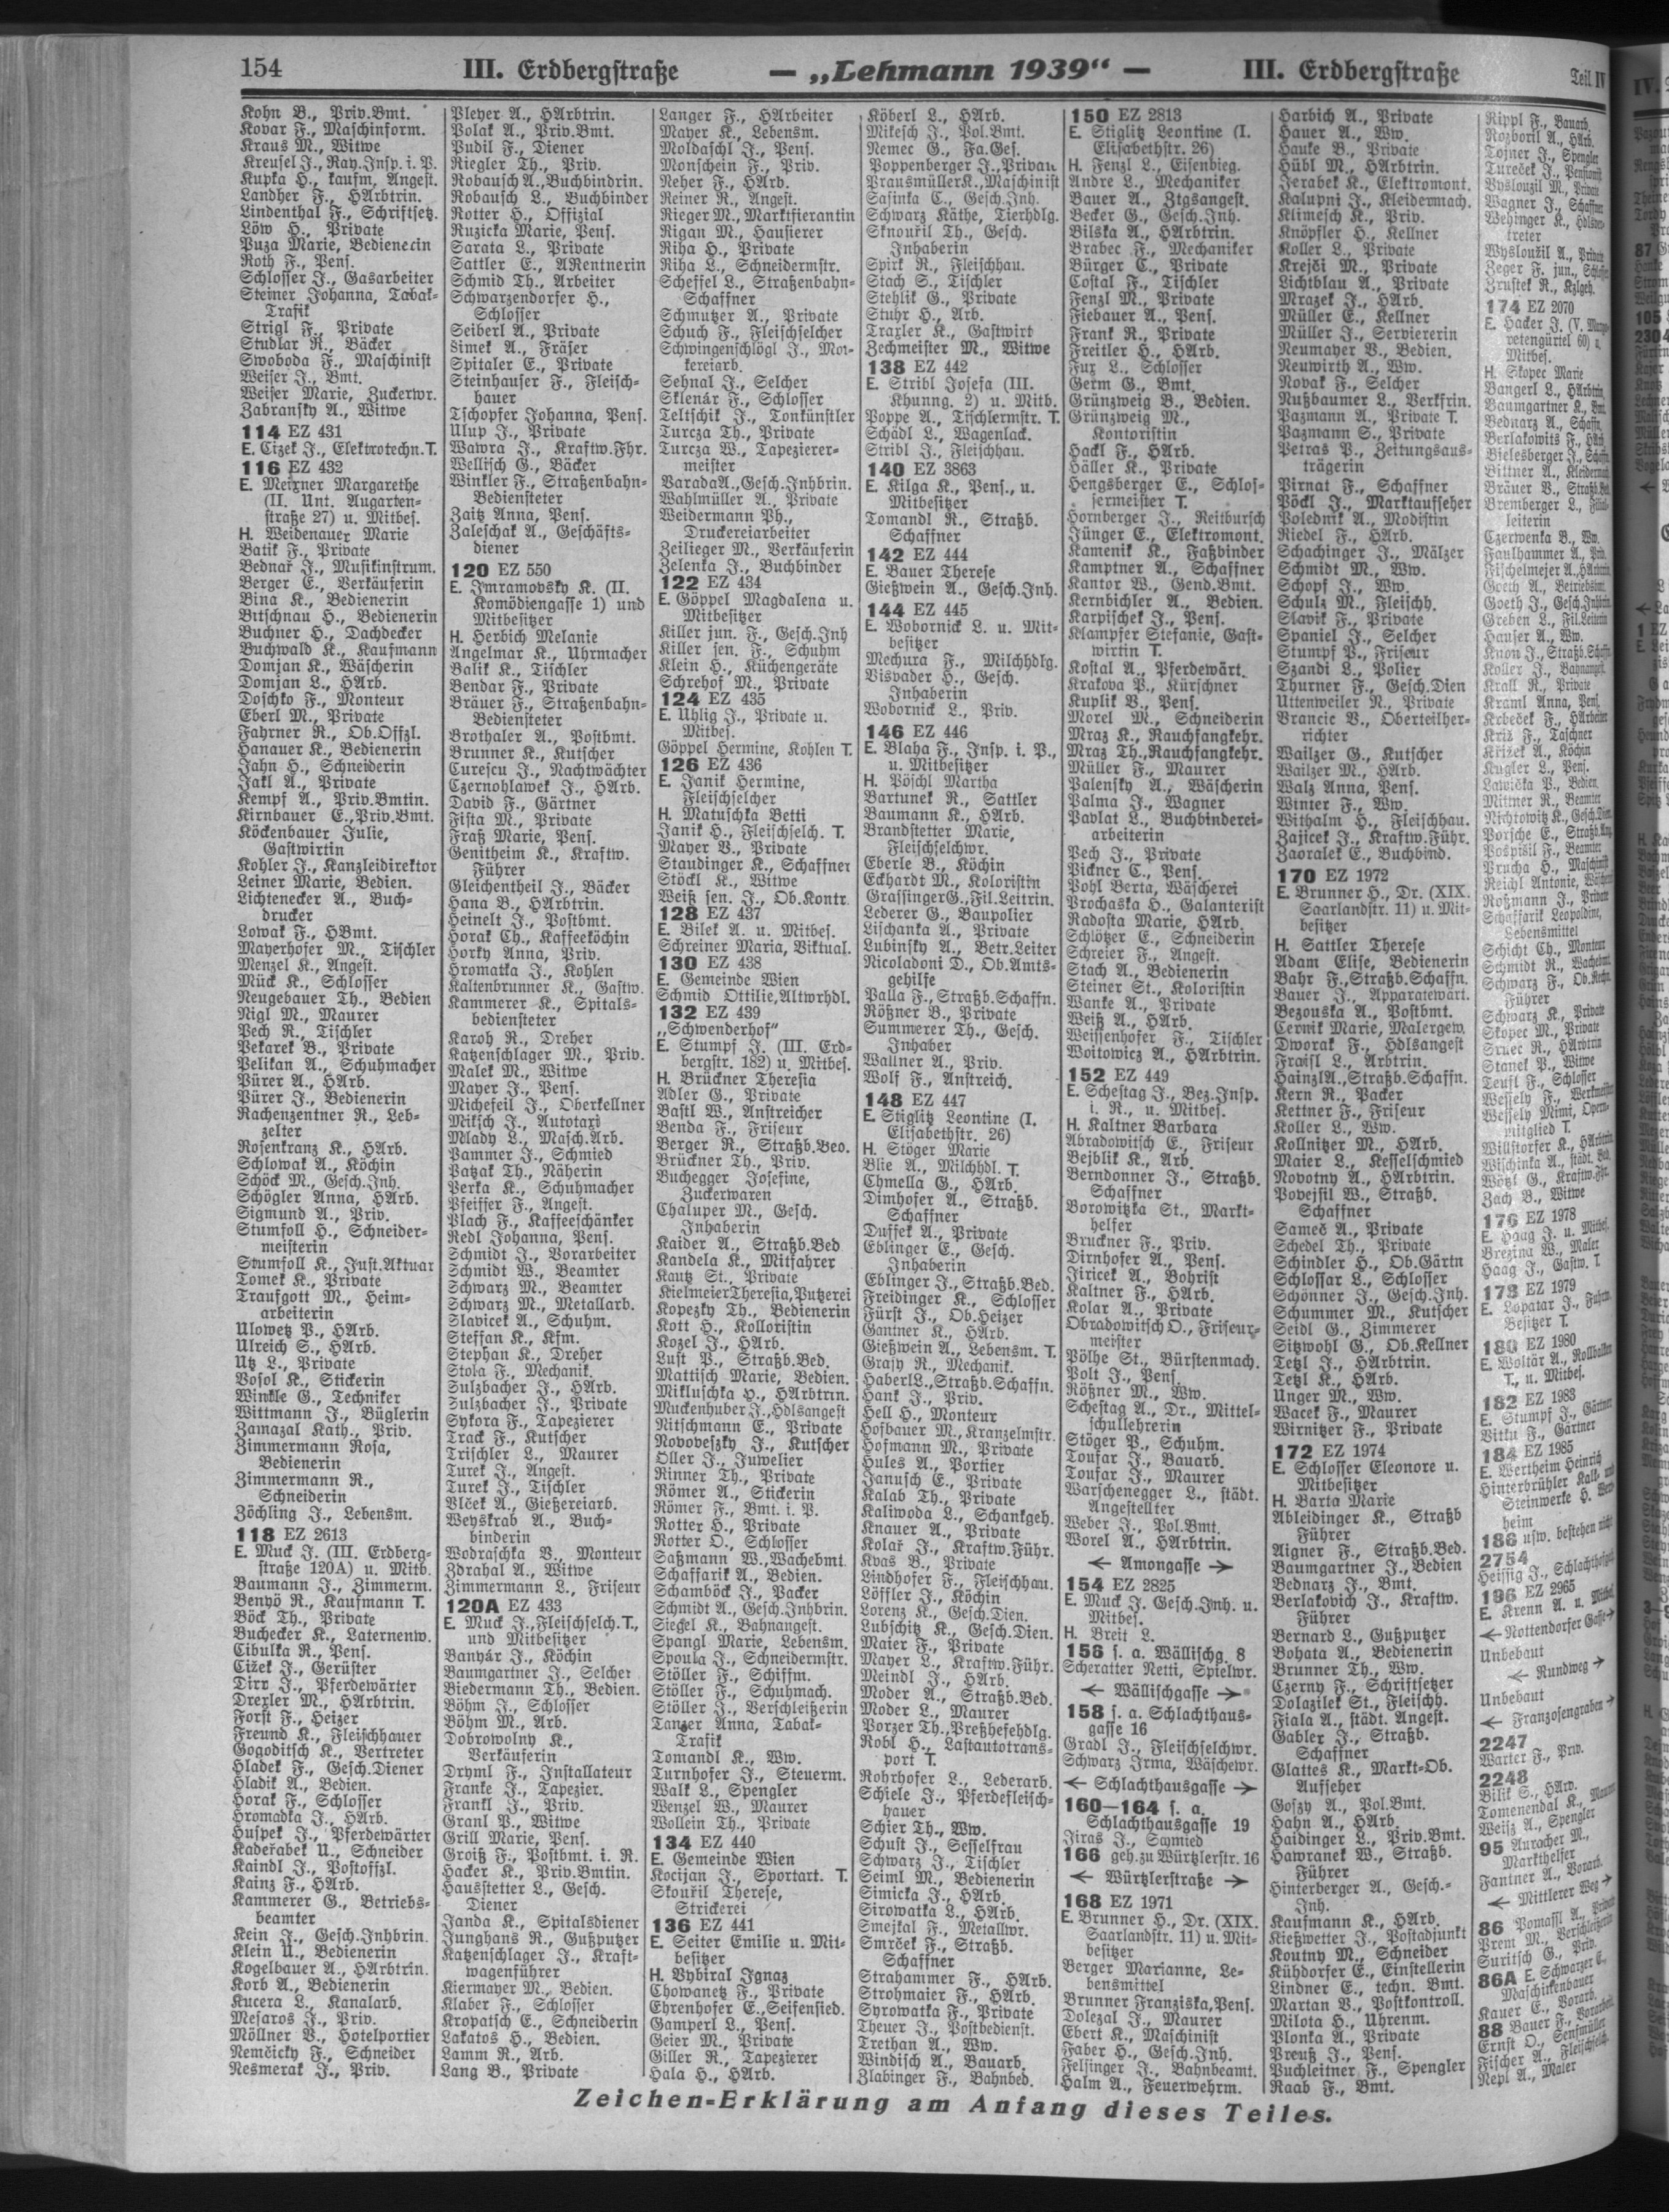 154
III. Erdbergstraße
— „Lehmann 1939“ —
III. Erdbergstraße
Teil IV
Kohn B., Priv.Bmt.
Kovar F., Maschinform.
Kraus M., Witwe
Kreusel J., Ray.Insp. i. P.
Kupka H., kaufm. Angest.
Landherr F., HArbtrin.
Lindenthal F., Schriftsetz.
Löw H., Private
Puza Marie, Bedienerin
Roth F., Pens.
Schlosser J., Gasarbeiter
Steiner Johanna, Tabak-
Trafik
Strigl F., Private
Studlar R., Bäcker
Swoboda F., Maschinist
Weiser J., Bmt.
Weiser Marie, Zuckerwr.
Zabransky A., Witwe
114 EZ 431
E. Cizek J., Elektrotechn.T.
116 EZ 432
E. Meixner Margarethe
(II. Unt. Augarten-
straße 27) u. Mitbes.
H. Weidenauer Marie
Batik F., Private
Bednař J., Musikinstrum.
Berger E., Verkäuferin
Bina K., Bedienerin
Bitschnau H., Bedienerin
Buchner H., Dachdecker
Buchwald K., Kaufmann
Domjan K., Wäscherin
Domjan L., HArb.
Doschko F., Monteur
Eberl M., Private
Fahrner R., Ob.Offzl.
Hanauer K., Bedienerin
Jahn H., Schneiderin
Jakl A., Private
Kempf A., Priv.Bmtin.
Kirnbauer E., Priv.Bmt.
Köckenbauer Julie,
Gastwirtin
Kohler J., Kanzleidirektor
Leiner Marie, Bedien.
Lichtenecker A., Buch-
drucker
Lowak F., HBmt.
Mayerhofer M., Tischler
Menzel K., Angest.
Mück K., Schlosser
Neugebauer Th., Bedien
Nigl M., Maurer
Pech R., Tischler
Pekarek B., Private
Pelikan A., Schuhmacher
Pürer A., HArb.
Pürer J., Bedienerin
Rachenzentner R., Leb-
zelter
Rosenkranz K., HArb.
Schlowak A., Köchin
Schöck M., Gesch.Inh.
Schögler Anna, HArb.
Sigmund A., Priv.
Stumfoll H., Schneider-
meisterin
Stumfoll K., Just.Aktuar
Tomek K., Private
Traufgott M., Heim-
arbeiterin
Ulowetz P., HArb.
Ulreich S., HArb.
Utz L., Private
Vosol K., Stickerin
Winkle G., Techniker
Wittmann J., Büglerin
Zamazal Kath., Priv.
Zimmermann Rosa,
Bedienerin
Zimmermann R.,
Schneiderin
Zöchling J., Lebensm.
118 EZ 2613
E. Muck J. (III. Erdberg-
straße 120A) u. Mitb.
Baumann J., Zimmerm.
Benyö R., Kaufmann T.
Böck Th., Private
Buchecker K., Laternenw.
Cibulka R., Pens.
Čížek J., Gerüster
Dirr J., Pferdewärter
Drexler M., HArbtrin.
Forst F., Heizer
Freund K., Fleischhauer
Gogoditsch K., Vertreter
Hladek F., Gesch.Diener
Hladik A., Bedien.
Horak F., Schlosser
Hromadka J., HArb.
Huspek J., Pferdewärter
Kadeřabek U., Schneider
Kaindl J., Postoffzl.
Kainz F., HArb.
Kammerer G., Betriebs-
beamter
Kein J., Gesch.Inhbrin.
Klein U., Bedienerin
Kogelbauer A., HArbtrin.
Korb A., Bedienerin
Kucera L., Kanalarb.
Mesaros J., Priv.
Möllner V., Hotelportier
Nemčicky F., Schneider
Nesmerak J., Priv.
Pleyer A., HArbtrin.
Polak A., Priv.Bmt.
Pudil F., Diener
Riegler Th., Priv.
Robausch A., Buchbindrin.
Robausch L., Buchbinder
Rotter H., Offizial
Ruzicka Marie, Pens.
Sarata L., Private
Sattler E., ARentnerin
Schmid Th., Arbeiter
Schwarzendorfer H.,
Schlosser
Seiberl A., Private
Simek A., Fräser
Spitaler E., Private
Steinhauser F., Fleisch-
hauer
Tschopfer Johanna, Pens.
Ulup J., Private
Wawra J., Kraftw.Fhr.
Wellisch G., Bäcker
Winkler F., Straßenbahn-
Bediensteter
Zaitz Anna, Pens.
Zaleschak A., Geschäfts-
diener
120 EZ 550
E. Imramovsky K. (II.
Komödiengasse 1) und
Mitbesitzer
H. Herbich Melanie
Angelmar K., Uhrmacher
Balik K., Tischler
Bendar F., Private
Bräuer F., Straßenbahn-
Bediensteter
Brothaler A., Postbmt.
Brunner K., Kutscher
Curescu J., Nachtwächter
Czernohlawek J., HArb.
David F., Gärtner
Fista M., Private
Fraß Marie, Pens.
Genitheim K., Kraftw.
Führer
Gleichentheil J., Bäcker
Hana B., HArbtrin.
Heinelt J., Postbmt.
Horak Ch., Kaffeeköchin
Horky Anna, Priv.
Hromatka J., Kohlen
Kaltenbrunner K., Gastw.
Kammerer K., Spitals-
bediensteter
Karoh R., Dreher
Katzenschlager M., Priv.
Malek M., Witwe
Mayer J., Pens.
Micheseil J., Oberkellner
Miksch J., Autotaxi
Mlady L., Masch.Arb.
Pammer J., Schmied
Patzak Th., Näherin
Perka K., Schuhmacher
Pfeiffer F., Angest.
Plach F., Kaffeeschänker
Redl Johanna, Pens.
Schmidt J., Vorarbeiter
Schmidt W., Beamter
Schwarz M., Beamter
Schwarz M., Metallarb.
Slavicek A., Schuhm.
Steffan K., Kfm.
Stephan K., Dreher
Stola F., Mechanik.
Sulzbacher J., HArb.
Sulzbacher J., Private
Sykora F., Tapezierer
Track F., Kutscher
Trischler L., Maurer
Turek J., Angest.
Turek J., Tischler
Vlček A., Gießereiarb.
Weyskrab A., Buch-
binderin
Wodraschka V., Monteur
Zdrahal A., Witwe
Zimmermann L., Friseur
120A EZ 433
E. Muck J., Fleischselch.T.,
und Mitbesitzer
Banyár J., Köchin
Baumgartner J., Selcher
Biedermann Th., Bedien.
Böhm J., Schlosser
Böhm M., Arb.
Dobrowolny K.,
Verkäuferin
Dryml F., Installateur
Franke J., Tapezier.
Frankl J., Priv.
Granl P., Witwe
Grill Marie, Pens.
Groiß F., Postbmt. i. R.
Hacker K., Priv.Bmtin.
Hausstetter L., Gesch.
Diener
Janda K., Spitalsdiener
Junghans R., Gußputzer
Katzenschlager J., Kraft-
wagenführer
Kiermayer M., Bedien.
Klaber F., Schlosser
Kropatsch E., Schneiderin
Lakatos H., Bedien.
Lamm R., Arb.
Lang B., Private
Langer F., HArbeiter
Mayer K., Lebensm.
Moldaschl J., Pens.
Monschein F., Priv.
Neher F., HArb.
Reiner R., Angest.
Rieger M., Markfierantin
Rigan M., Hausierer
Riha H., Private
Riha L., Schneidermstr.
Scheffel L., Straßenbahn-
Schaffner
Schmutzer A., Private
Schuch F., Fleischselcher
Schwingenschlögl J., Mol-
kereiarb.
Sehnal J., Selcher
Sklenár F., Schlosser
Teltschik J., Tonkünstler
Turcza Th., Private
Turcza W., Tapezierer-
meister
Varada A., Gesch.Inhbrin.
Wahlmüller A., Private
Weidermann Ph.,
Druckereiarbeiter
Zeilieger M., Verkäuferin
Zelenka J., Buchbinder
122 EZ 434
E. Göppel Magdalena u.
Mitbesitzer
Killer jun. F., Gesch.Inh
Killer sen. F., Schuhm
Klein H., Küchengeräte
Schrehof M., Private
124 EZ 435
E. Uhlig J., Private u.
Mitbes.
Göppel Hermine, Kohlen T.
126 EZ 436
E. Janik Hermine,
Fleischselcher
H. Matuschka Betti
Janik H., Fleischselch. T.
Mayer V., Private
Staudinger K., Schaffner
Stöckl K., Witwe
Weiß sen. J., Ob.Kontr
128 EZ 437
E. Bilek A. u. Mitbes.
Schreiner Maria, Viktual.
130 EZ 438
E. Gemeinde Wien
Schmid Ottilie, Altwrhdl.
132 EZ 439
„Schwenderhof“
E. Stumpf J. (III. Erd-
bergstr. 182) u. Mitbes.
H. Brückner Theresia
Adler G., Private
Bastl W., Anstreicher
Benda F., Friseur
Berger R., Straßb.Beo.
Brückner Th., Priv.
Buchegger Josefine,
Zuckerwaren
Chaluper M., Gesch.
Inhaberin
Kaider A., Straßb.Bed
Kandela K., Mitfahrer
Kautz St., Private
Kielmeier Theresia, Putzerei
Kopezky Th., Bedienerin
Kott H., Kolloristin
Kozel J., HArb.
Lust P., Straßb.Bed.
Mattisch Marie, Bedien.
Mikluschka H., HArbtrin.
Muckenhuber J., Hdlsangest
Nitschmann E., Private
Novoveszky J., Kutscher
Oller J., Juwelier
Rinner Th., Private
Römer A., Stickerin
Römer F., Bmt. i. P.
Rotter H., Private
Rotter O., Schlosser
Saßmann W., Wachebmt.
Schaffarik A., Bedien.
Schamböck J., Packer
Schmidt A., Gesch.Inhbrin.
Siegel K., Bahnangest.
Spangl Marie, Lebensm.
Spoula J., Schneidermstr.
Stöller F., Schiffm.
Stöller F., Schuhmach.
Stöller J., Verschleißerin
Tanzer Anna, Tabak-
Trafik
Tomandl K., Ww.
Turnhofer J., Steuerm.
Walk L., Spengler
Wenzel W., Maurer
Wollein Th., Private
134 EZ 440
E. Gemeinde Wien
Kocijan J., Sportart. T.
Skouřil Therese,
Strickerei
136 EZ 441
E. Seiter Emilie u. Mit-
besitzer
H. Vybiral Ignaz
Chowanetz F., Private
Ehrenhofer E., Seifensied.
Gamperl L., Pens.
Geier M., Private
Giller R., Tapezierer
Hala H., HArb.
Köberl L., HArb.
Mikesch J., Pol.Bmt.
Nemec G., Fa.Ges.
Poppenberger J., Privan
Prausmüller K., Maschinist
Sasinka C., Gesch.Inh.
Schwarz Käthe, Tierhdlg.
Sknouřil Th., Gesch.
Inhaberin
Spirk R., Fleischhau.
Stach S., Tischler
Stehlik G., Private
Stuhr H., Arb.
Traxler K., Gastwirt
Zechmeister M., Witwe
138 EZ 442
E. Stribl Josefa (III.
Khunng. 2) u. Mitb.
Poppe A., Tischlermstr. T.
Schädl L., Wagenlack.
Stribl J., Fleischhau.
140 EZ 3863
E. Kilga K., Pens., u.
Mitbesitzer
Tomandl R., Straßb.
Schaffner
142 EZ 444
E. Bauer Therese
Gießwein A., Gesch.Inh.
144 EZ 445
E. Wobornick L. u. Mit-
besitzer
Mechura F., Milchhdlg.
Visvader H., Gesch.
Inhaberin
Wobornick L., Priv.
146 EZ 446
E. Blaha F., Insp. i. P.,
u. Mitbesitzer
H. Pöschl Martha
Bartunek R., Sattler
Baumann K., HArb.
Brandstetter Marie,
Fleischselchwr.
Eberle B., Köchin
Eckhardt M., Koloristin
Grassinger G., Fil.Leitrin.
Lederer G., Baupolier
Lischanka A., Private
Lubinsky A., Betr.Leiter
Nicoladoni D., Ob.Amts-
gehilfe
Palla F., Straßb.Schaffn.
Rößner B., Private
Summerer Th., Gesch.
Inhaber
Wallner A., Priv.
Wolf F., Anstreich.
148 EZ 447
E. Stiglitz Leontine (I.
Elisabethstr. 26)
H. Stöger Marie
Blie A., Milchhdl. T.
Chmella G., HArb.
Dimhofer A., Straßb.
Schaffner
Duffek A., Private
Eblinger E., Gesch.
Inhaberin
Eblinger J., Straßb.Bed.
Freidinger K., Schlosser
Fürst J., Ob.Heizer
Gantner K., HArb.
Gießwein A., Lebensm. T.
Grasy R., Mechanik.
Haberl L., Straßb.Schaffn.
Hank J., Priv.
Hell H., Monteur
Hofbauer M., Kranzelmstr.
Hofmann M., Private
Hules A., Portier
Janusch E., Private
Kalab Th., Private
Kaliwoda L., Schankgeh.
Knauer A., Private
Kolař J., Kraftw.Führ.
Kvas B., Private
Lindhofer F., Fleischhau.
Löffler J., Köchin
Lorenz K., Gesch.Dien.
Lubschitz K., Gesch.Dien.
Maier F., Private
Mayer L., Kraftw.Führ.
Meindl J., HArb.
Moder A., Straßb.Bed.
Moder L., Maurer
Porzer Th., Preßhefehdlg.
Robl H., Lastautotrans-
port T.
Rohrhofer L., Lederarb.
Schiele J., Pferdefleisch-
hauer
Schier Th., Ww.
Schust J., Sesselfrau
Schwarz J., Tischler
Seiml M., Bedienerin
Simicka J., HArb.
Sirowatka L., HArb.
Smejkal F., Metallwr.
Smrček F., Straßb.
Schaffner
Strahammer F., HArb.
Strohmaier F., HArb.
Syrowatka F., Private
Theuer J., Postbedienst.
Trethan A., Ww.
Windisch A., Bauarb.
Zlabinger F., Bahnbed.
150 EZ 2813
E. Stiglitz Leontine (I.
Elisabethstr. 26)
H. Fenzl L., Eisenbieg.
Andre L., Mechaniker
Bauer A., Ztgsangest.
Becker G., Gesch.Inh.
Bilska A., HArbtrin.
Brabec F., Mechaniker
Bürger C., Private
Costal F., Tischler
Fenzl M., Private
Fiebauer A., Pens.
Frank R., Private
Freitler H., HArb.
Fux L., Schlosser
Germ G., Bmt.
Grünzweig B., Bedien.
Grünzweig M.,
Kontoristin
Hackl F., HArb.
Häller K., Private
Hengsberger E., Schlos-
sermeister T.
Hornberger J., Reitbursch
Jünger E., Elektromont.
Kamenik K., Faßbinder
Kamptner A., Schaffner
Kantor W., Gend.Bmt.
Kernbichler A., Bedien.
Karpischek J., Pens.
Klampfer Stefanie, Gast-
wirtin T.
Kostal A., Pferdewärt.
Krakova P., Kürschner
Kuplik B., Pens.
Morel M., Schneiderin
Mraz K., Rauchfangkehr.
Mraz Th., Rauchfangkehr.
Müller F., Maurer
Palensky A., Wäscherin
Palma J., Wagner
Pavlat L., Buchbinderei-
arbeiterin
Pech J., Private
Pickner C., Pens.
Pohl Berta, Wäscherei
Prochaska H., Galanterist
Radosta Marie, HArb.
Schlötzer E., Schneiderin
Schreier F., Angest.
Stach A., Bedienerin
Steiner St., Koloristin
Wanke A., Private
Weiß A., HArb.
Weissenhofer F., Tischler
Woitowicz A., HArbtrin.
152 EZ 449
E. Schestag J., Bez.Insp.
i. R., u. Mitbes.
H. Kaltner Barbara
Abradowitsch E., Friseur
Bejblik K., Arb.
Berndonner J., Straßb.
Schaffner
Borowitzka St., Markt-
helfer
Bruckner F., Priv.
Dirnhofer A., Pens.
Jiricek A., Bohrist
Kaltner F., HArb.
Kolar A., Private
Obradowitsch O., Friseur-
meister
Pölhe St., Bürstenmach.
Polt J., Pens.
Rößner M., Ww.
Schestag A., Dr., Mittel-
schullehrerin
Stöger P., Schuhm.
Toufar J., Bauarb.
Toufar J., Maurer
Warschenegger L., städt.
Angestellter
Weber J., Pol.Bmt.
Worel A., HArbtrin.
← Amongasse →
154 EZ 2825
E. Muck J. Gesch.Inh. u.
Mitbes.
H. Breit L.
156 s. a. Wällischg. 8
Scheratter Netti, Spielwr.
← Wällischgasse →
158 s. a. Schlachthaus-
gasse 16
Gradl J., Fleischselchwr.
Schwarz Irma, Wäschewr.
← Schlachthausgasse →
160—164 s. a.
Schlachthausgasse 19
Jiras J., Schmied
166 geh.zu Würtzlerstr. 16
← Würtzlerstraße →
168 EZ 1971
E. Brunner H., Dr. (XIX.
Saarlandstr. 11) u. Mit-
besitzer
Berger Marianne, Le-
bensmittel
Brunner Franziska, Pens.
Dolezal J., Maurer
Ebert K., Maschinist
Faber H., Gesch.Inh.
Felsinger J., Bahnbeamt.
Halm A., Feuerwehrm.
Harbich A., Private
Hauer A., Ww.
Hauke B., Private
Hübl M., HArbtrin.
Jerabek K., Elektromont.
Kalupni J., Kleidermach.
Klimesch K., Priv.
Knöpfler H., Kellner
Koller L., Private
Krejči M., Private
Lichtblau A., Private
Mrazek J., HArb.
Müller E., Kellner
Müller J., Serviererin
Neumayer V., Bedien.
Neuwirth A., Ww.
Novak F., Selcher
Nußbaumer L., Verkfrin.
Pazmann A., Private T.
Pazmann S., Private
Petras P., Zeitungsaus-
trägerin
Pirnat F., Schaffner
Pöckl J., Marktaufseher
Polednik A., Modistin
Riedel F., HArb.
Schachinger J., Mälzer
Schmidt M., Ww.
Schopf J., Ww.
Schulz M., Fleischh.
Slavik F., Private
Spaniel J., Selcher
Stumpf P., Friseur
Szandi L., Polier
Thurner F., Gesch.Dien
Uttenweiler R., Private
Vrancic V., Oberteilher-
richter
Wailzer G., Kutscher
Wailzer M., HArb.
Walz Anna, Pens.
Winter F., Ww.
Withalm H., Fleischhau.
Zajicek J., Kraftw.Führ.
Zaoralek E., Buchbind.
170 EZ 1972
E. Brunner H., Dr. (XIX.
Saarlandstr. 11) u. Mit-
besitzer
H. Sattler Therese
Adam Elise, Bedienerin
Bahr F., Straßb.Schaffn.
Bauer J., Apparatewärt.
Bezouska A., Postbmt.
Cernik Marie, Malergew.
Dworak F., Hdlsangest
Fraisl L., Arbtrin.
Hainzl A., Straßb.Schaffn.
Kern R., Packer
Kettner F., Friseur
Koller L., Ww.
Kollnitzer M., HArb.
Maier L., Kesselschmied
Novotny A., HArbtrin.
Povejsil W., Straßb.
Schaffner
Sameč A., Private
Schedel Th., Private
Schindler H., Ob.Gärtn
Schlossar L., Schlosser
Schönner J., Gesch.Inh.
Schummer M., Kutscher
Seidl G., Zimmerer
Sitzwohl G., Ob.Kellner
Tetzl J., HArbtrin.
Tetzl K., HArb.
Unger M., Ww.
Wacek F., Maurer
Wirnitzer F., Private
172 EZ 1974
E. Schlosser Eleonore u.
Mitbesitzer
H. Barta Marie
Ableidinger K., Straßb
Führer
Aigner F., Straßb.Bed.
Baumgartner J., Bedien
Bednarz J., Bmt.
Berlakovich J., Kraftw.
Führer
Bernard L., Gußputzer
Bohata A., Bedienerin
Brunner Th., Ww.
Czerny F., Schriftsetzer
Dolazilek St., Fleischh.
Fiala A., städt. Angest.
Gabler J., Straßb.
Schaffner
Glattes K., Markt-Ob.
Aufseher
Goszy A., Pol.Bmt.
Hahn A., HArb.
Haidinger L., Priv.Bmt.
Hawranek W., Straßb.
Führer
Hinterberger A., Gesch.-
Inh.
Kaufmann K., HArb.
Kießwetter J., Postadjunkt
Koutny M., Schneider
Kühdorfer E., Einstellerin
Lindner E., techn. Bmt.
Martan V., Postkontroll.
Milota H., Uhrenm.
Plonka A., Private
Preuß J., Pens.
Puchleitner F., Spengler
Raab F., Bmt.
Rippl F., Bauarb.
Rozboril A., HArb.
Tojner J., Spengler
Tureček J., Pensionist
Vyslouzil M., Private
Wagner J., Schaffner
Wehinger K.,
treter
Wysloužil A., Private
Zeger F. jun., Schlosser
Zrustek R., Kzlgeh.
174 EZ 2070
E. Hacker J. (V.
retengürtel 60) u.
Mitbes.
H. Skopec Marie
Bangerl L., HArbtrin.
Baumgartner K., Bmt.
Bednarz A., Schaffn.
Berlakowits F.,
Bielesberger J.,
Bittner A.,
Bräuer V., Straßb.Bed.
Bremberger L.,
leiterin
Czerwenka B., Ww.
Faulhammer A., Priv.
Fischelmejer A., HArbtrin.
Goeth A., Betriebsbmt.
Goeth J., Gesch.Inhbrin.
Greben L., Fil.Leiterin
Hauser A., Ww.
Knon J., Straßb.Schaffn.
Koller J., Bahnangest.
Krall R., Private
Kraml Anna, Pens.
Krbeček F., HArbeiter
Kriz F., Taschner
Križek A., Köchin
Kugler L., Pens.
Lawicka P., Bedien.
Mittner R., Beamter
Nichtowitz K., Gesch.Dien.
Porsche E., Straßb.Ang.
Pospisil F., Beamter
Prucha H., Maschinist
Reichl Antonie,
Roßmann J., Private
Schaffarik Leopoldine,
Lebensmittel
Schicht Ch., Monteur
Schmidt R., Wachebmt.
Schwarz F.,
Führer
Schwarz K., Private
Skopec M., Private
Srnec R., HArbtrin
Stanek P., Witwe
Teufl F., Schlosser
Wessely F., Werkmeister
Wessely Mimi, Opern-
mitglied T.
Willstorfer K., HArbtrin.
Wischinka A., städt. Bed.
Wötzl G., Kraftw.Fhr.
Zach B., Witwe
176 EZ 1978
E. Haag J. u. Mitbes.
Brezina W., Maler
Haag J., Gastw. T.
178 EZ 1979
E. Lopatar J.,
Besitzer T.
180 EZ 1980
E. Woltär A.,
T., u. Mitbes.
182 EZ 1983
E. Stumpf J., Gärtner
Vitku F., Gärtner
184 EZ 1985
E. Wertheim Heinrich
Hinterbrühler Kalk- und
Steinwerke H.
heim
186 usw. bestehen nicht
2754
Heissig J.,
196 EZ 2965
E. Krenn A. u. Mitbes.
← Nottendorfer Gasse →
Unbebaut
← Rundweg →
Unbebaut
← Franzosengraben →
2247
Warter F., Priv.
2248
Bilik S., HArb.
Tomenendal K., Maurer
Weisz A., Spengler
95 Auracher M.,
Markthelfer
Fantner A., Vorarb.
← Mittlerer Weg →
86 Pomassl A., Private
Prem M.,
Suritsch G., Priv.
86A E. Schwarzer E.,
Maschinenbauer
Kauer E., Vorarb.
88 Bauer F., Vorarbeit.
Ernst O., Senfmüller
Fischer A., Fleischselch.
Nepl A., Maler
Zeichen-Erklärung am Anfang dieses Teiles.